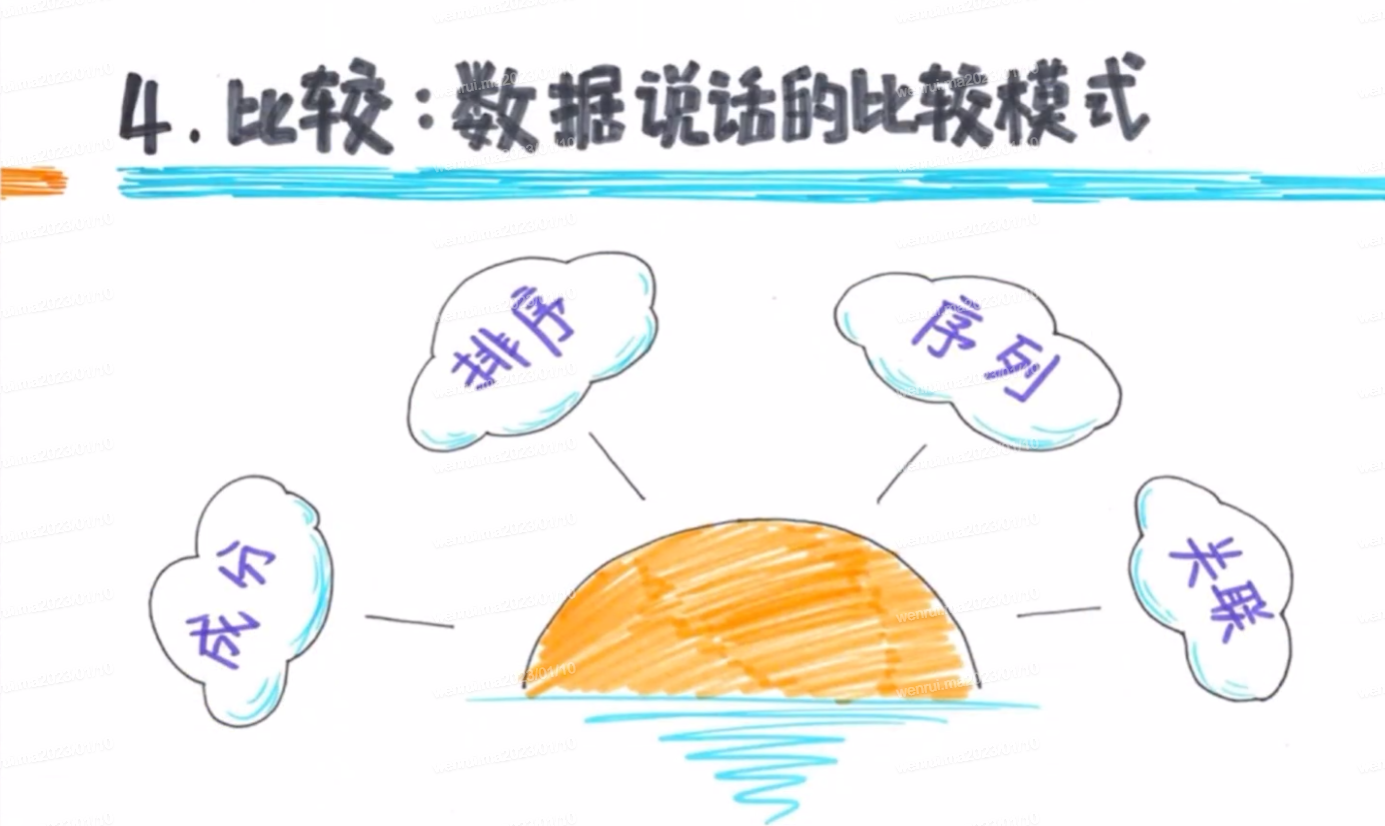 4. 比较：数据说话的比较模式
排序
序列
成分
关联
wenrui.ma2023/01/10